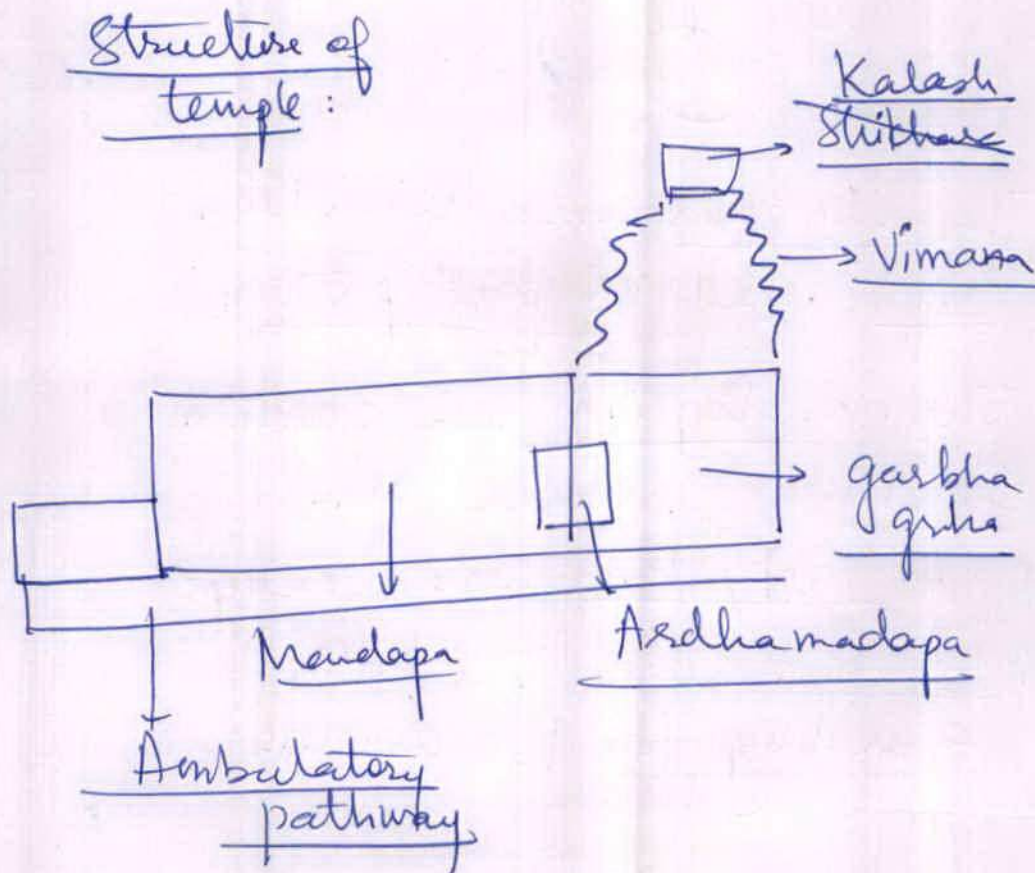 Structure of
temple :
Kalash
Shikhara
Vimana
garbha
griha
Mandapa
Ardhamadapa
Ambulatory
pathway